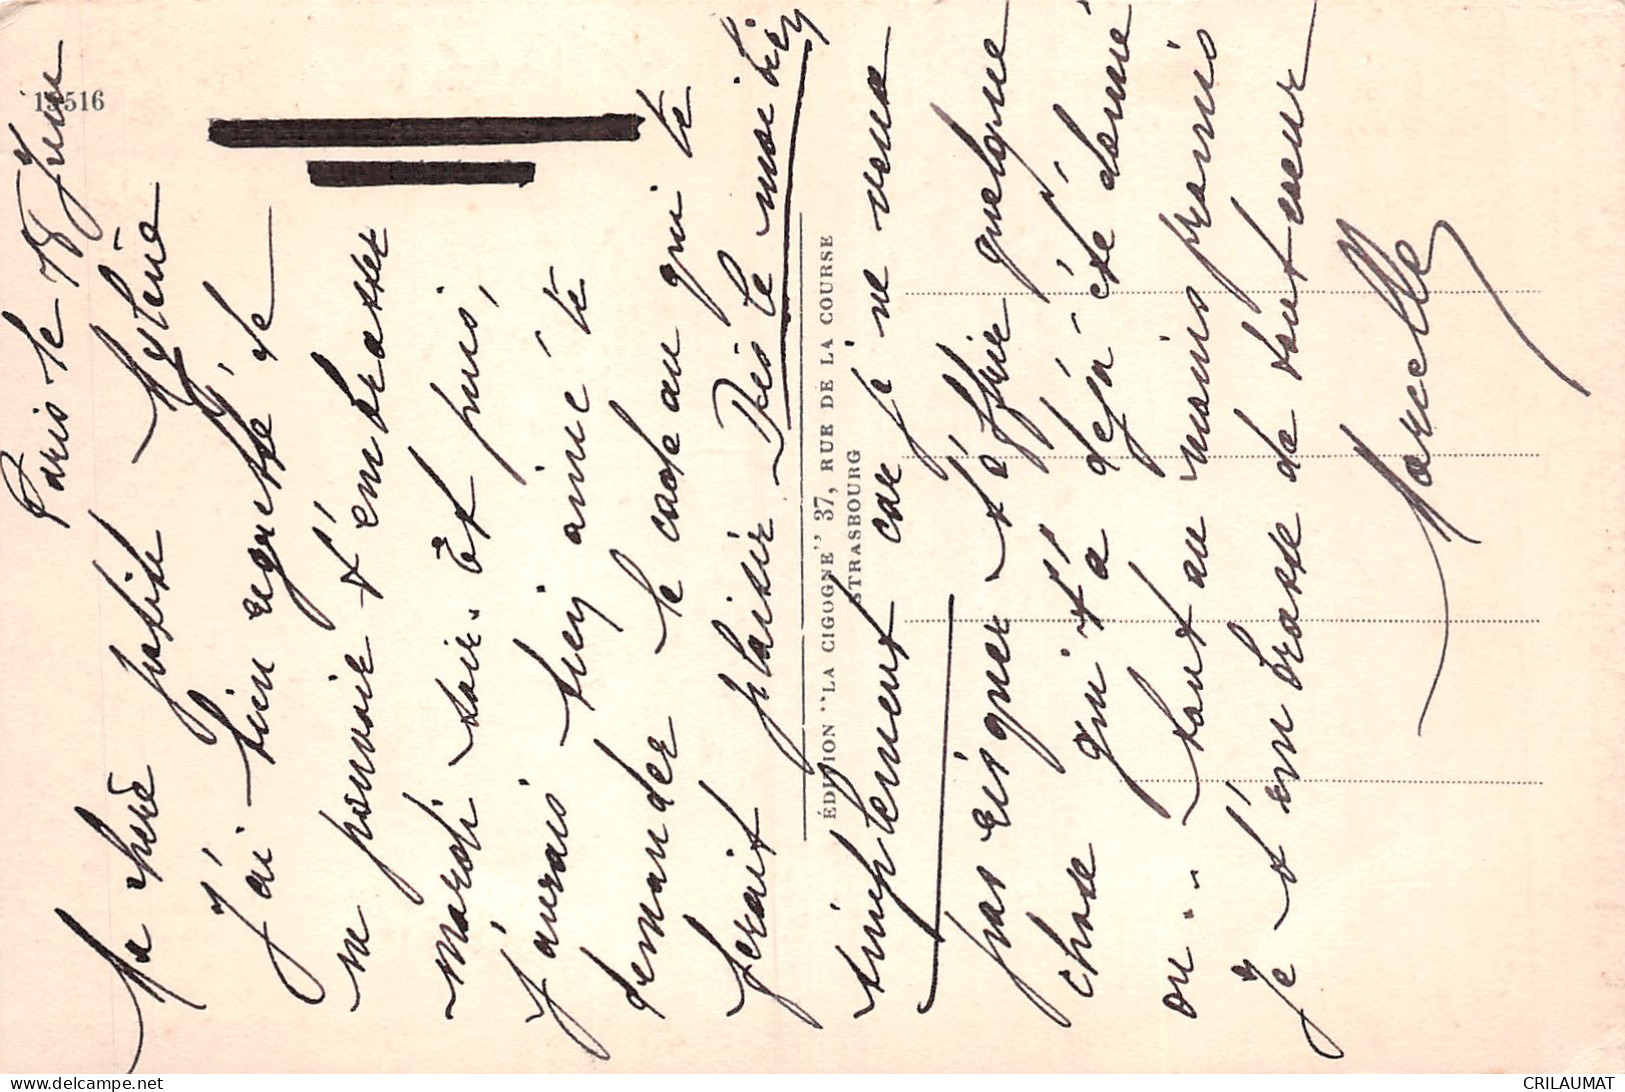 Paris le 18 Juin
Ma chère petite Mylène
J'ai bien regretté de
ne pouvoir t'embrasser
mardi soir. Et puis,
J'aurais bien aimé te
demander le cadeau qui te
ferait plaisir Dis le moi bien
simplement car je ne veux
pas risquer t'offrir quelque
chose qui t'a déjà été donné
ou .. tout au moins promis
Je t'embrasse de tout cœur
Marcelle
15516
ÉDITION "LA CIGOGNE" 37, RUE DE LA COURSE
STRASBOURG
CRILAUMAT